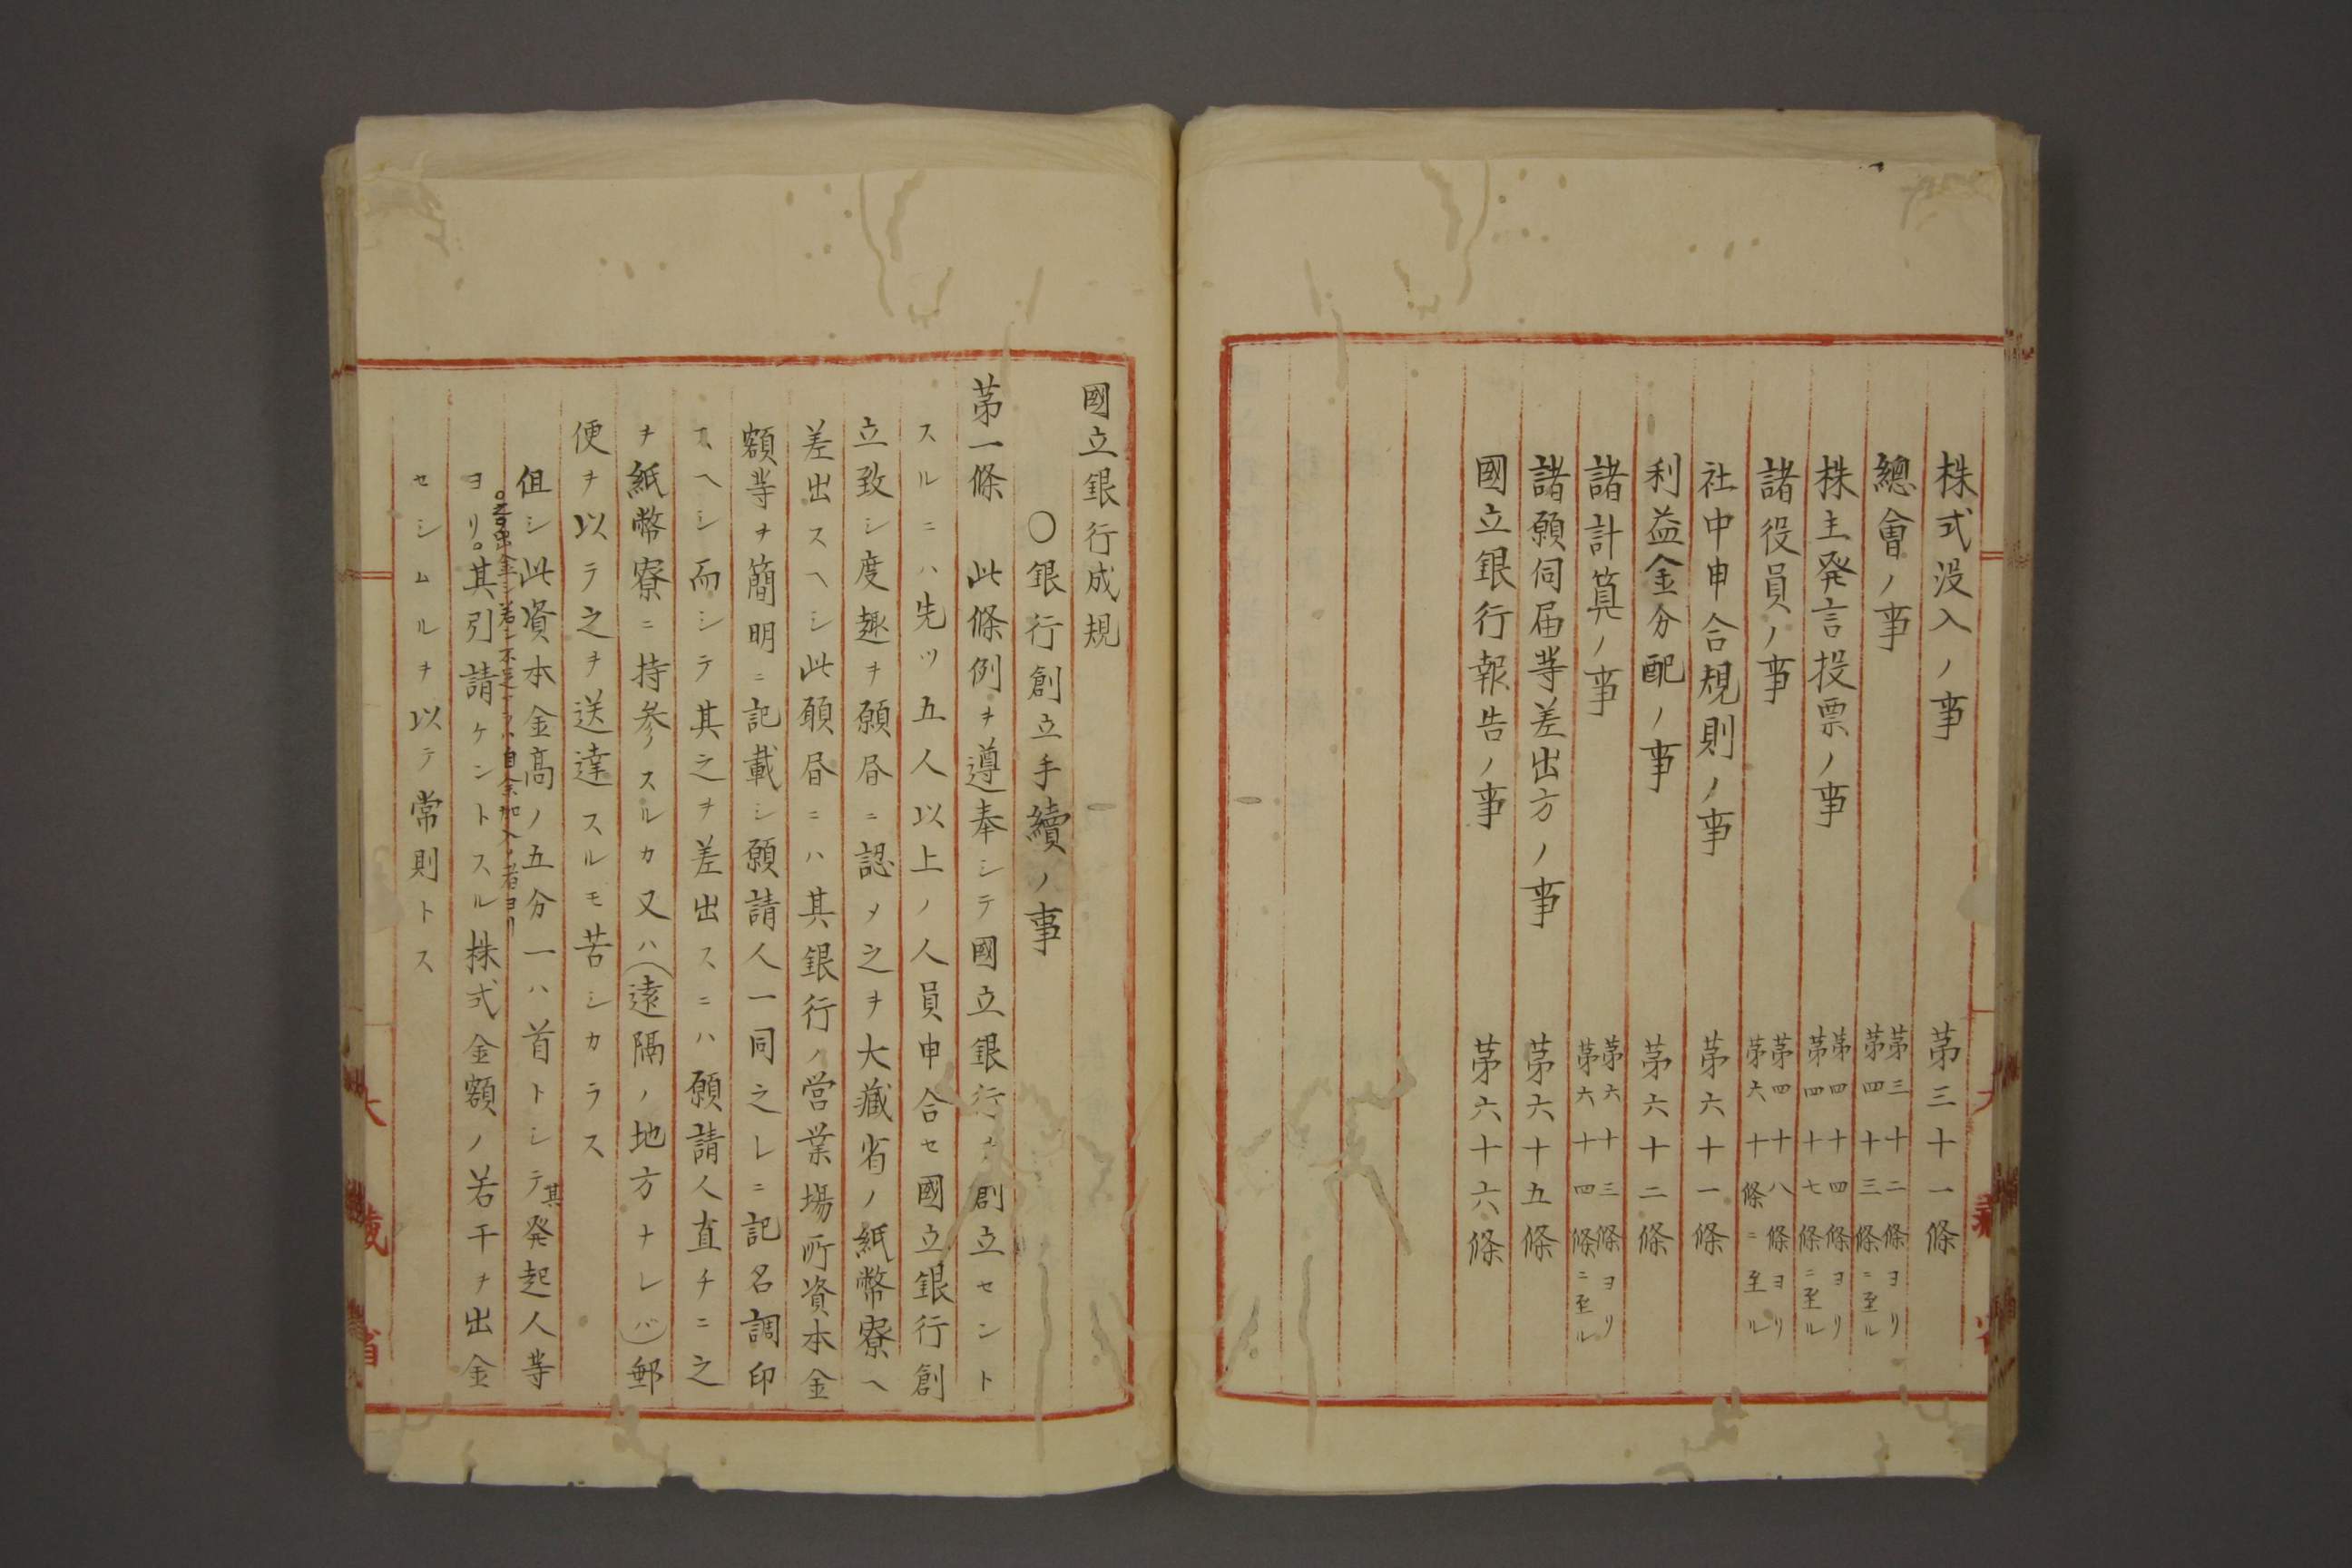 株式没入ノ事 第三十一條
總會ノ事 第三十二條ヨリ第四十三條ニ至ル
株主発言投票ノ事 第四十四條ヨリ第四十七條ニ至ル
諸役員ノ事 第四十八條ヨリ第六十條ニ至ル
社中申合規則ノ事 第六十一條
利益金分配ノ事 第六十二條
諸計算ノ事 第六十三條ヨリ第六十四條ニ至ル
諸願伺届等差出方ノ事 第六十五條
國立銀行報告ノ事 第六十六條
國立銀行成規
〇銀行創立手續ノ事
第一條 此條例ヲ遵奉シテ國立銀行ヲ創立セント
スルニハ先ツ五人以上ノ人員申合セ國立銀行創
立致シ度趣ヲ願書ニ認メ之ヲ大藏省ノ紙幣寮ヘ
差出スヘシ此願書ニハ其銀行ノ営業場所資本金
額等ヲ簡明ニ記載シ願請人一同之レニ記名調印
スヘシ而シテ其之ヲ差出スニハ願請人直チニ之
ヲ紙幣寮ニ持参スルカ又ハ(遠隔ノ地方ナレバ)郵
便ヲ以テ之ヲ送達スルモ苦シカラス
但シ此資本金高ノ五分一ハ首トシテ其発起人等
ヨリ。其引請ケントスル株式金額ノ若干ヲ出金
セシムルヲ以テ常則トス
大藏省